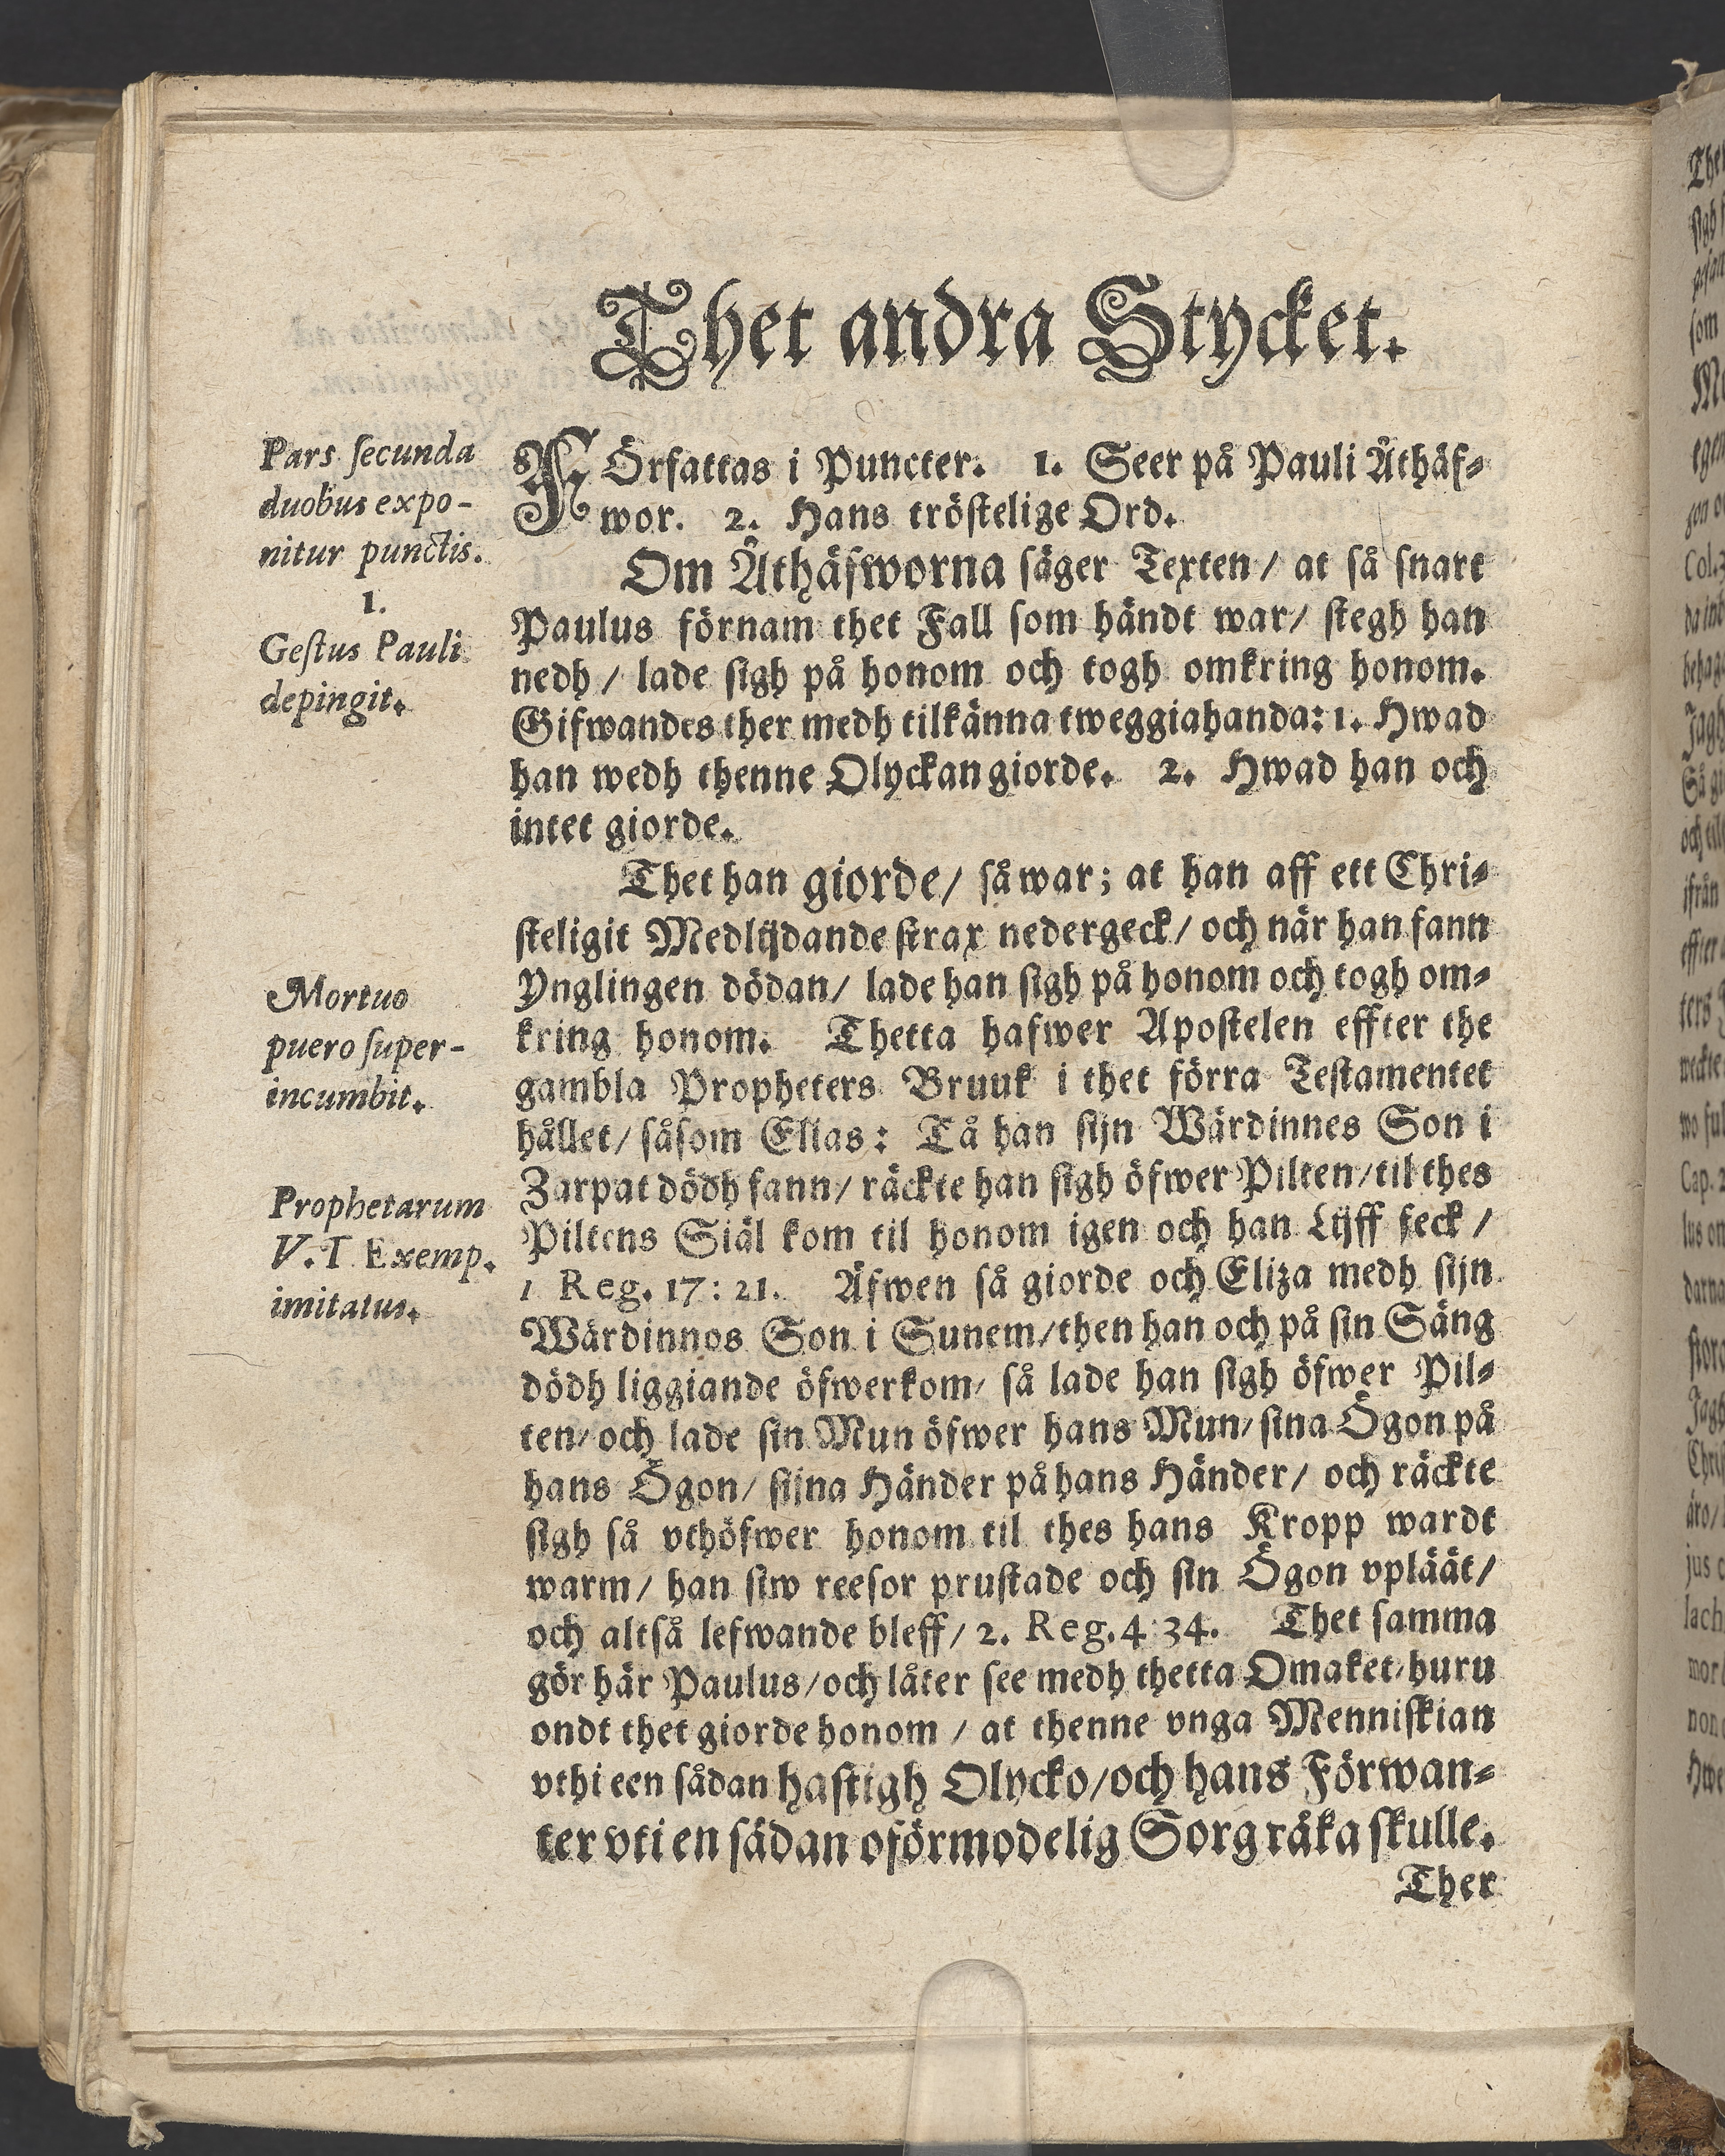 Thet andra Stycket.
Pars secunda
duobus expo-
nitur punctis.
1.
Gestus Pauli
depingit.
FÖrfattas i Puncter. 1. Seer på Pauli Äthäf-
wor. 2. Hans tröstelige Ord.
Om Äthäfworna säger Texten / at så snart
Paulus förnam thet Fall som händt war / stegh han
nedh / lade sigh på honom och togh omkring honom.
Gifwandes ther medh tilkänna tweggiahanda: 1. Hwad
han wedh thenne Olyckan giorde. 2. Hwad han och
intet giorde.
Thet han giorde / så war; at han aff ett Chri-
steligit Medlijdande strax nedergeck / och när han fann
Ynglingen dödan / lade han sigh på honom och togh om-
kring honom. Thetta hafwer Apostelen effter the
gambla Propheters Bruuk i thet förra Testamentet
hållet / såsom Elias: Tå han sijn Wärdinnes Son i
Zarpat dödh fann / räckte han sigh öfwer Pilten / til thes
Piltens Siäl kom til honom igen och han Lijff feck /
1 Reg. 17: 21. Äfwen så giorde och Eliza medh sijn
Wärdinnos Son i Sunem / then han och på sin Säng
dödh liggiande öfwerkom / så lade han sigh öfwer Pil-
ten / och lade sin Mun öfwer hans Mun / sina Ögon på
hans Ögon / sijna Händer på hans Händer / och räckte
sigh så vthöfwer honom til thes hans Kropp wardt
warm / han siw reesor prustade och sin Ögon vpläät /
och altså lefwande bleff / 2. Reg. 4 34. Thet samma
gör här Paulus / och låter see medh thetta Omaket / huru
ondt thet giorde honom / at thenne vnga Menniskian
vthi een sådan hastigh Olycko / och hans Förwan-
ter vti en sådan oförmodelig Sorg råka skulle.
Ther
Mortuo
puero super-
incumbit.
Prophetarum
V. T Exemp.
imitatus.